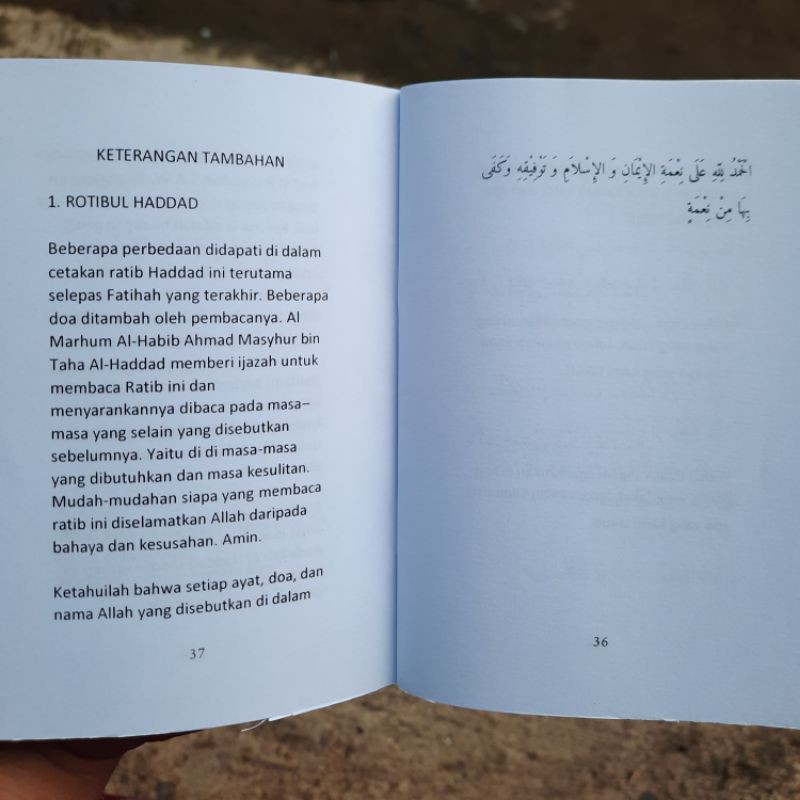 الْحَمْدُ لِلّٰهِ عَلَى نِعْمَةِ الإِيْمَانِ وَ الإِسْلاَمِ وَ تَوْفِيْقِهِ وَكَفَى
بِهَا مِنْ نِعْمَةٍ
36
KETERANGAN TAMBAHAN
1. ROTIBUL HADDAD
Beberapa perbedaan didapati di dalam
cetakan ratib Haddad ini terutama
selepas Fatihah yang terakhir. Beberapa
doa ditambah oleh pembacanya. Al
Marhum Al-Habib Ahmad Masyhur bin
Taha Al-Haddad memberi ijazah untuk
membaca Ratib ini dan
menyarankannya dibaca pada masa–
masa yang selain yang disebutkan
sebelumnya. Yaitu di di masa-masa
yang dibutuhkan dan masa kesulitan.
Mudah-mudahan siapa yang membaca
ratib ini diselamatkan Allah daripada
bahaya dan kesusahan. Amin.
Ketahuilah bahwa setiap ayat, doa, dan
nama Allah yang disebutkan di dalam
37